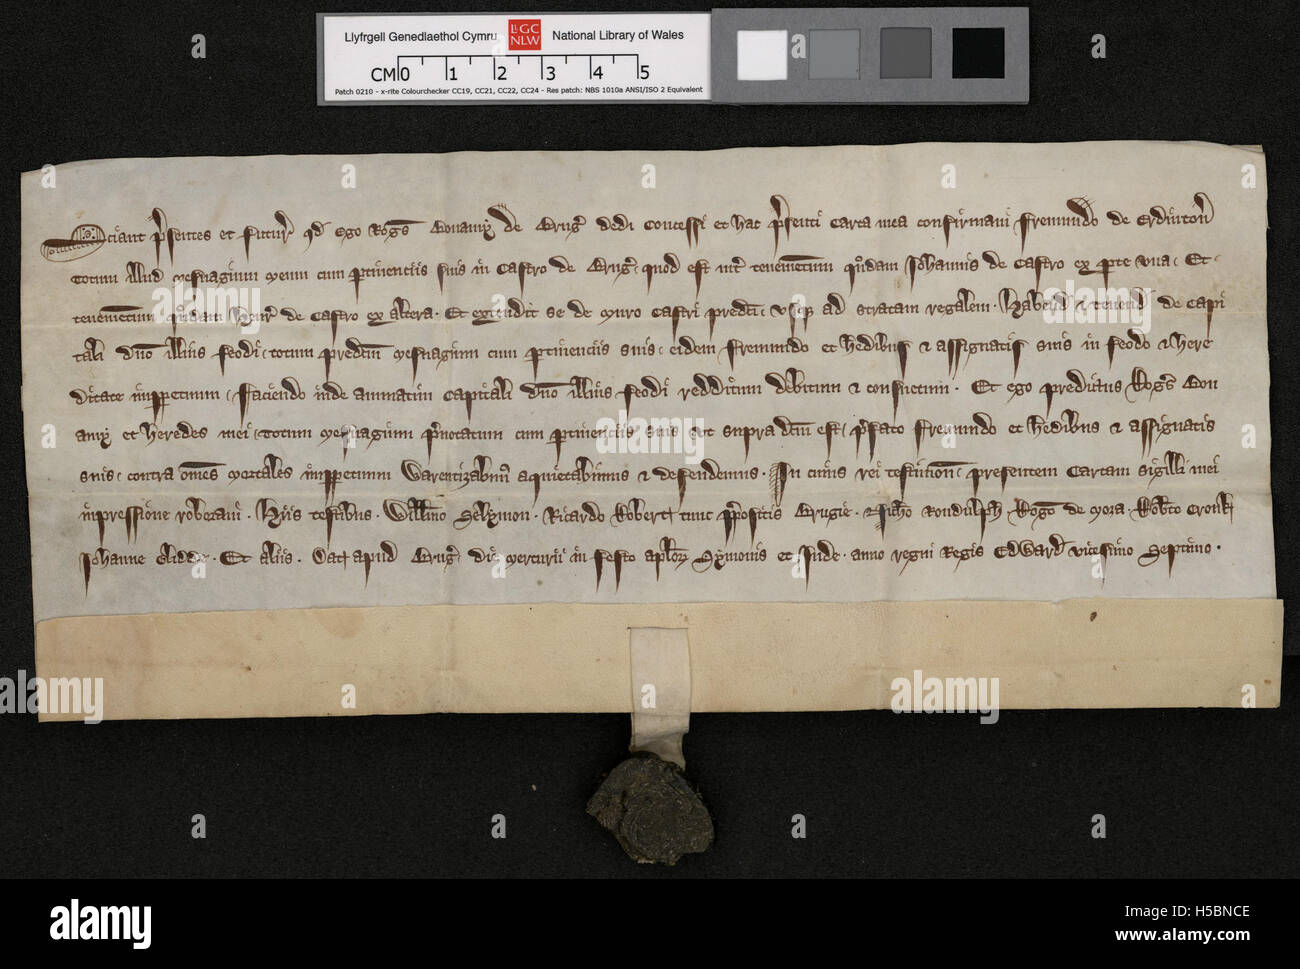 Llyfrgell Genedlaethol Cymru
LlGC
NLW
National Library of Wales
CM 0 1 2 3 4 5
Patch 0210 - x-rite Colourchecker CC19, CC21, CC22, CC24 - Res patch: NBS 1010a ANSI/ISO 2 Equivalent
Sciant p'sentes et futur' qd ego Rog's de Brug' dedi concessi et hac p'senti carta mea confirmavi Fremundo de Erdinton'
totum illud mesuagium meum cum p'tinenciis suis in Castro de Brug' quod est int' tenementum q'ndam Johannis de Castro ex p'te una. Et
tenementum q'ndam Henr' de Castro ex altera. Et extendit se de muro castri predc'i usq' ad stratam regalem. Habend' & tenend' de capi
tali d'no illius feodi totum predc'm mesuagium cum p'tinenciis suis eidem Fremundo et h'edibus & assignatis suis in feodo & here
ditate inp'petuum faciendo inde annuatim capitali d'no illius feodi redditum debitum & consuetum. Et ego predictus Rog's Bon
amy et heredes mei totum mesuagium p'notatum cum p'tinenciis suis ut supradc'm est p'fato Fremundo et h'edibus & assignatis
suis contra om'es mortales inp'petuum warentizabim' aquietabimus & defendemus. In cuius rei testimon' presentem cartam sigilli mei
inpressione roboravi. Hiis testibus. Will'mo Selymon. Ricardo Robert tunc p'positis Brugie. Joh'o Rondulph Rog'o de mora. Rob'to Cronk
Johanne Glidde. Et aliis. Dat' apud Brug' die mercurii in festo ap'lor' Symonis et Jude. anno regni Regis Edward' vicesimo septimo.
alamy
a
H5BNCE
www.alamy.com